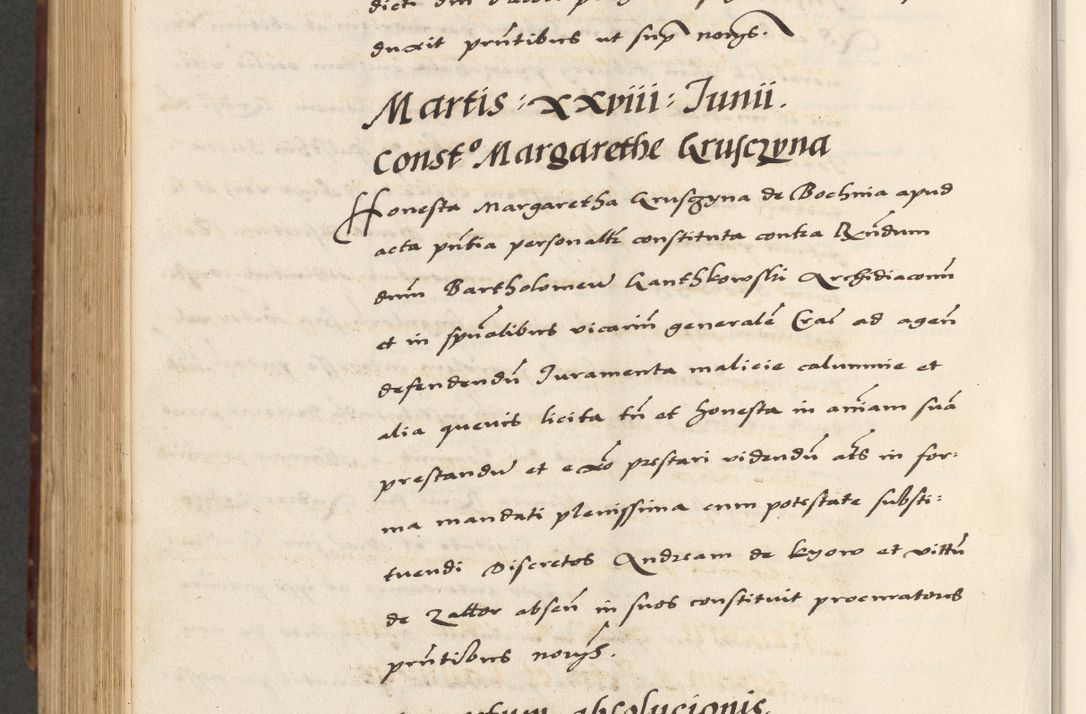 duxit prñtibus ut sup norys.
Martis : XXviii : Junii.
Constº Margarethe Grusczyna
Honesta Margaretha Grusczyna de Bochnia apud
acta pñtia personalr constituta contra Rñdum
dnm Bartholomeu Ganthkowski Archidiaconu
et in spñalibus vicariu generale Cra ad agen
defendendu Juramenta malicie calumnie et
alia quevis licita tñ et honesta in aiam sua
prestandu et ex prestari videndu acs in for:
ma mandati plenissima cum potestate substi:
tuendi Discretos Andream de kyow et vittu
de Zator absen in suos constituit procuratores
prñtibus norys.
absolucionis